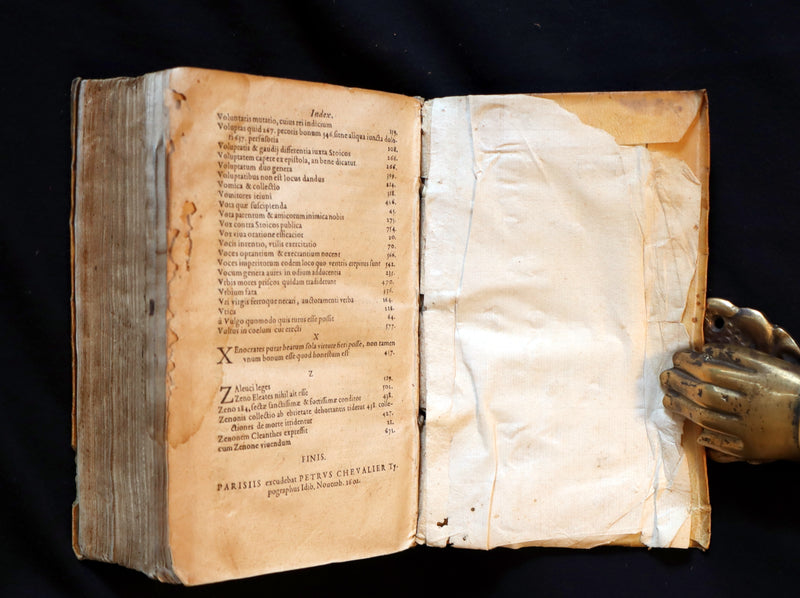 Index.
Voluntatis mutatio, cuius rei indicium 119.
Voluptas quid 267. pecoris bonum 546. sine aliqua iuncta dolo-
ri 637. perfusoria
Voluptatis & gaudij differentia iuxta Stoicos 208.
Voluptatem capere ex epistola, an bene dicatur 266.
Voluptatum duo genera 266.
Voluptatibus non est locus dandus 319.
Vomica & collectio 224.
Vomitores ieiuni 318.
Vota quæ suscipienda 426.
Vota parentum & amicorum inimica nobis 45.
Vox contra Stoicos publica 275.
Vox viua oratione efficacior 754.
Vocis intentio, vtilis exercitatio 20.
Voces optantium & execrantium nocent 70.
Voces imperitorum eodem loco quo ventris crepitus sunt 542.
Vocum genera aures in odium adducentia 235.
Vrbis mores priscos quidam tradiderunt 470.
Vrbium fata
Vri virgis ferroque necari, auctoramenti verba 164.
Vtica
à Vulgo quomodo quis tutus esse possit 64.
Vultus in coelum cur erecti 577.
X
XEnocrates putat beatum sola virtute fieri posse, non tamen
vnum bonum esse quod honestum est 417.
Z
ZAleuci leges 119.
Zeno Eleates nihil ait esse 502.
Zeno 284. sectæ sanctissimæ & fortissimæ conditor 438.
Zenonis collectio ab ebrietate dehortantis ridetur 438. colle-
ctiones de morte irridentur 427.
Zenonem Cleanthes expressit 22.
cum Zenone viuendum 671.
FINIS.
PARISIIS excudebat PETRVS CHEVALIER Ty-
pographus Idib. Nouemb. 1602.